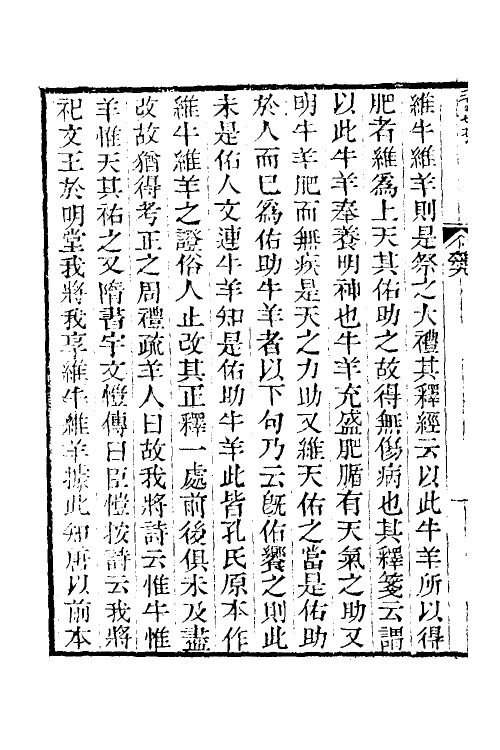 維牛維羊則是祭之大禮其釋經云以此牛羊所以得
肥者維爲上天其佑助之故得無傷病也其釋箋云謂
以此牛羊奉養明神也牛羊充盛肥腯有天氣之助又
明牛羊肥而無疾是天之力助又維天佑之當是佑助
於人而巳爲佑助牛羊者以下句乃云旣佑饗之則此
未是佑人文連牛羊知是佑助牛羊此皆孔氏原本作
維牛維羊之證俗人止改其正釋一處前後俱未及盡
改故猶得考正之周禮疏羊人曰故我將詩云惟牛惟
羊惟天其祐之又隋書宇文愷傳曰臣愷按詩云我將
祀文王於明堂我將我享維牛維羊據此知唐以前本